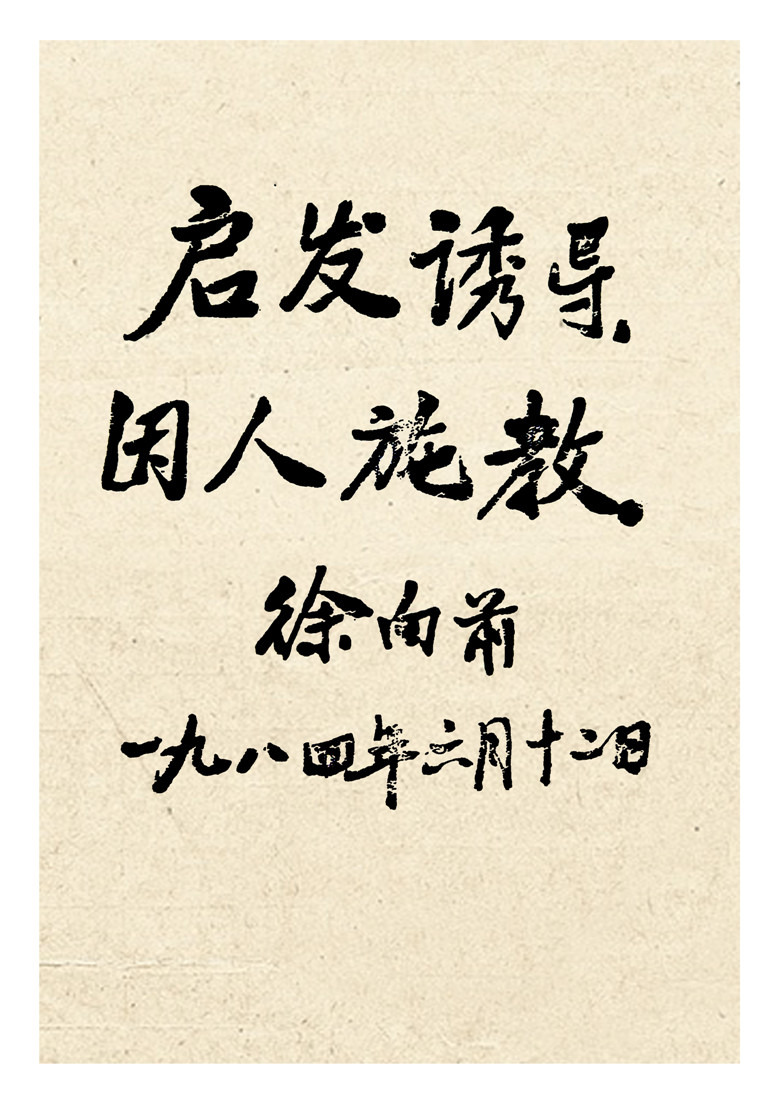 启发诱导
因人施教
徐向前
一九八四年六月十二日